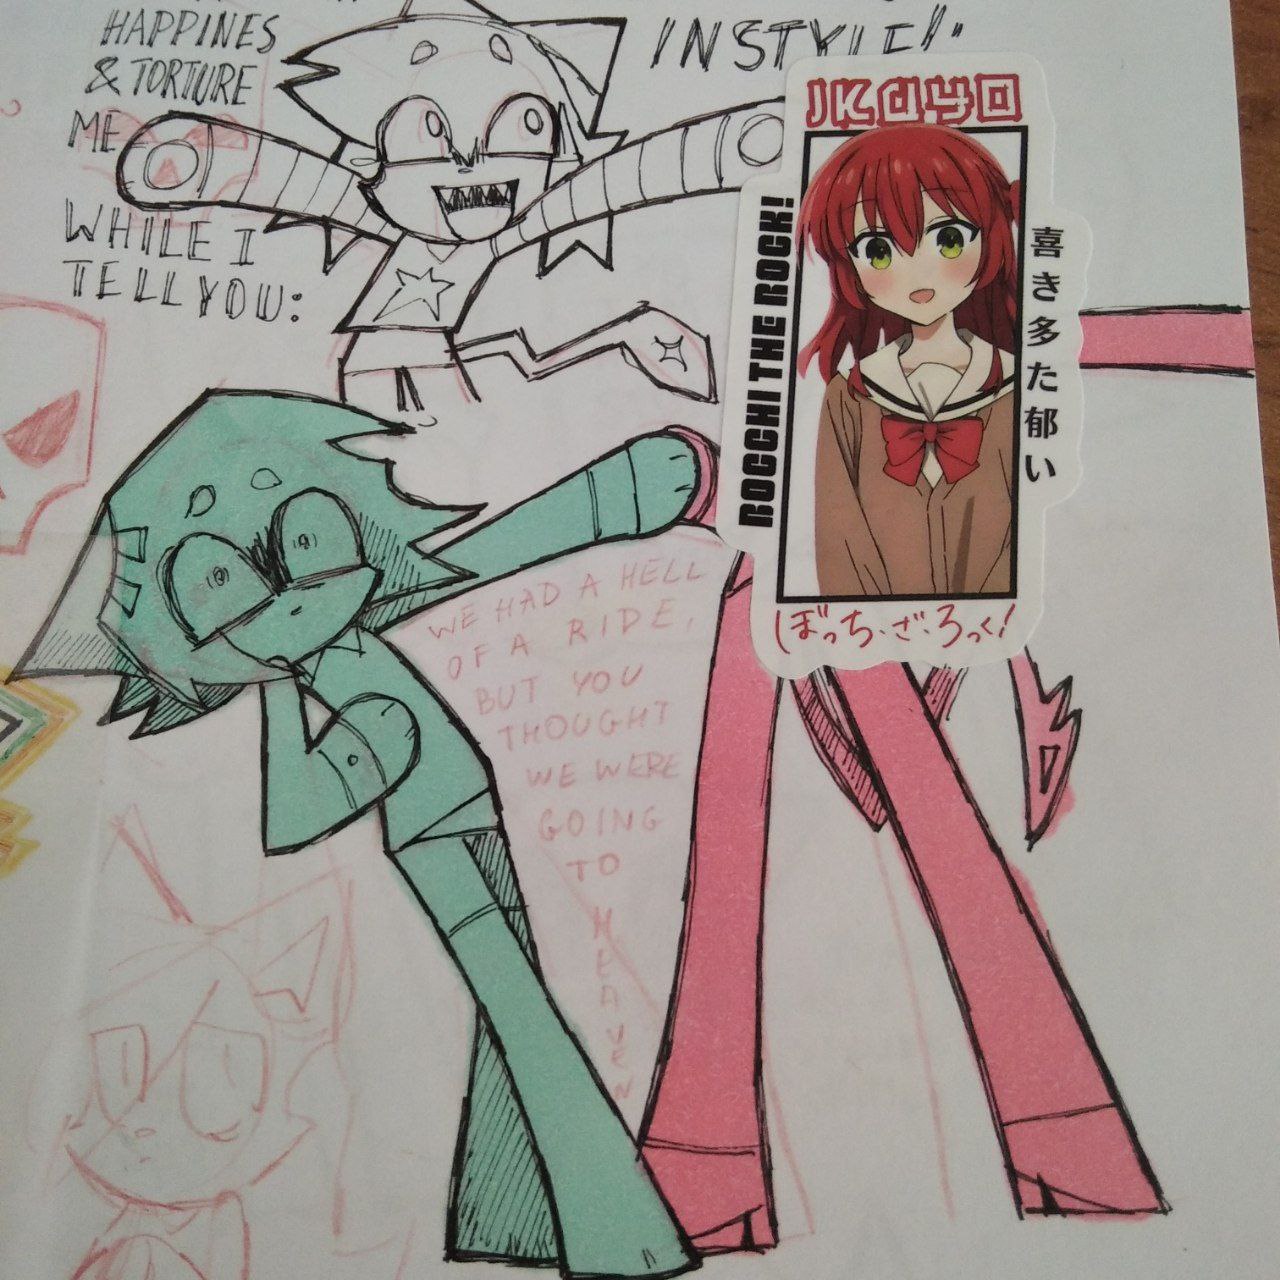 HAPPINES
& TORTURE
ME
WHILE I
TELL YOU:
IN STYLE!"
IKUYO
BOCCHI THE ROCK!
喜き多た郁い
ぼっち・ざ・ろっく!
WE HAD A HELL
OF A RIDE,
BUT YOU
THOUGHT
WE WERE
GOING
TO
HEAVEN